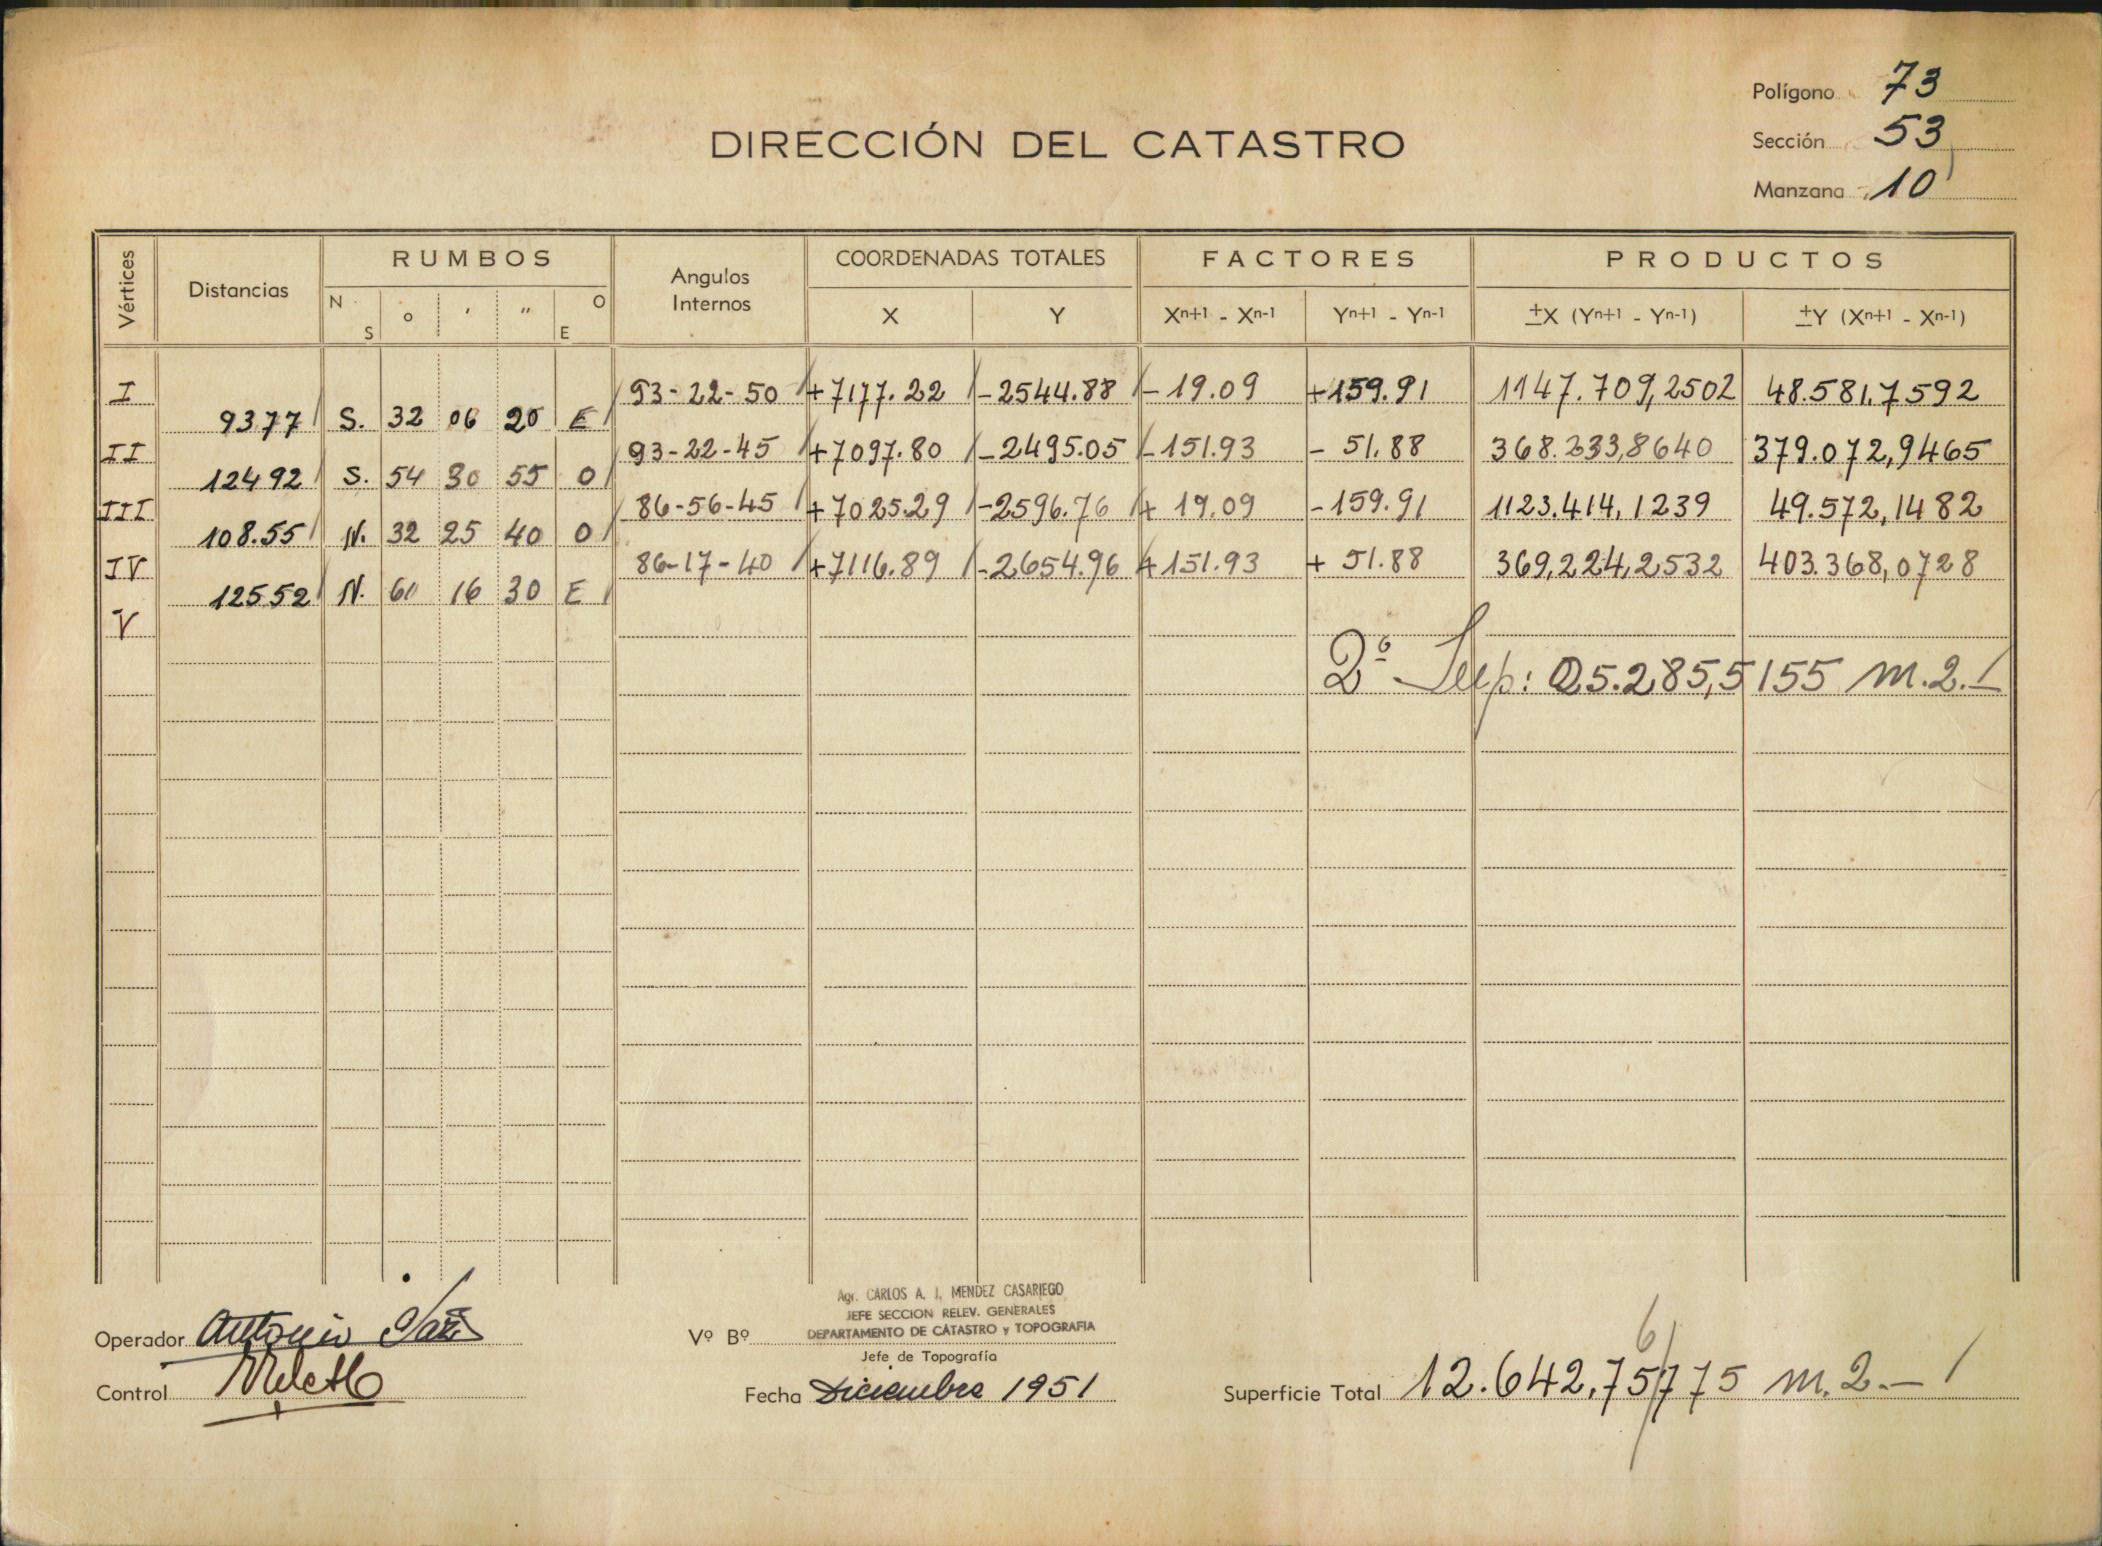 Polígono 73
DIRECCIÓN DEL CATASTRO
Sección 53
Manzana 10
Vértices Distancias RUMBOS Angulos Internos COORDENADAS TOTALES FACTORES PRODUCTOS
N S o ′ ″ O E X Y Xn+1 - Xn-1 Yn+1 - Yn-1 ±X (Yn+1 - Yn-1) ±Y (Xn+1 - Xn-1)
I 93-22-50 +7177.22 -2544.88 -19.09 +159.91 1147.709,2502 48.581,7592
9377 S. 32 06 20 E
II 93-22-45 +7097.80 -2495.05 -151.93 - 51.88 368.233,8640 379.072,9465
12492 S. 54 30 55 O
III 86-56-45 +7025.29 -2596.76 + 19.09 -159.91 1123.414,1239 49.572,1482
108.55 N. 32 25 40 O
IV 86-17-40 +7116.89 -2654.96 +151.93 + 51.88 369,224,2532 403.368,0728
12552 N. 60 16 30 E
V
2º Sup: 25.285,5155 m.2.-
Agr. CARLOS A. I. MENDEZ CASARIEGO
JEFE SECCION RELEV. GENERALES
DEPARTAMENTO DE CATASTRO y TOPOGRAFIA
Operador Antonio
Vº Bº
Jefe de Topografía
Control
Fecha Diciembre 1951
Superficie Total 12.642,75775 m.2.-
6